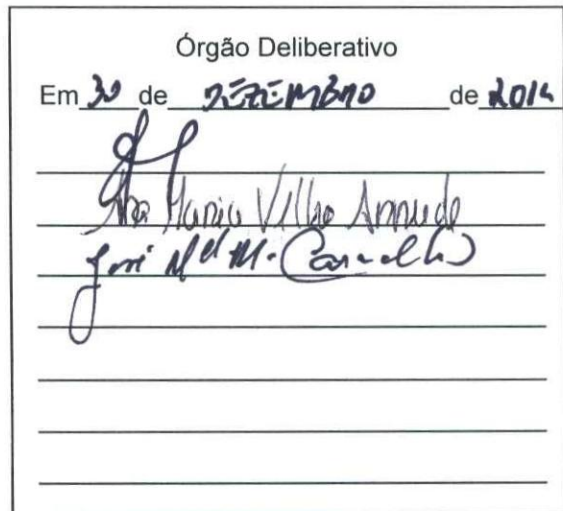 Órgão Deliberativo
Em 30 de DEZEMBRO de 2014
Ana Maria Velho Arruda
José Mel M. Carvalho